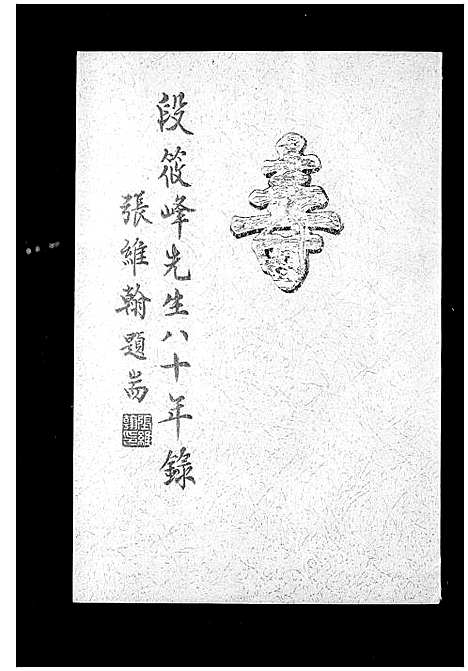 壽
段筱峰先生八十年錄
張維翰題耑